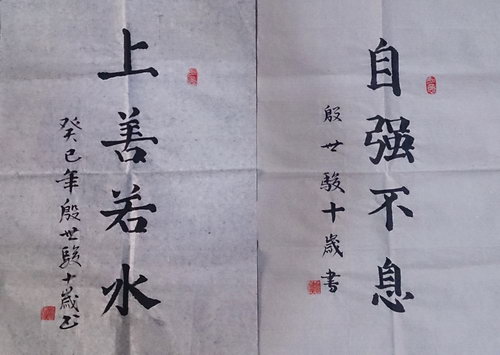 自强不息
殷世駿十歲書
上善若水
癸巳年殷世駿十歲书